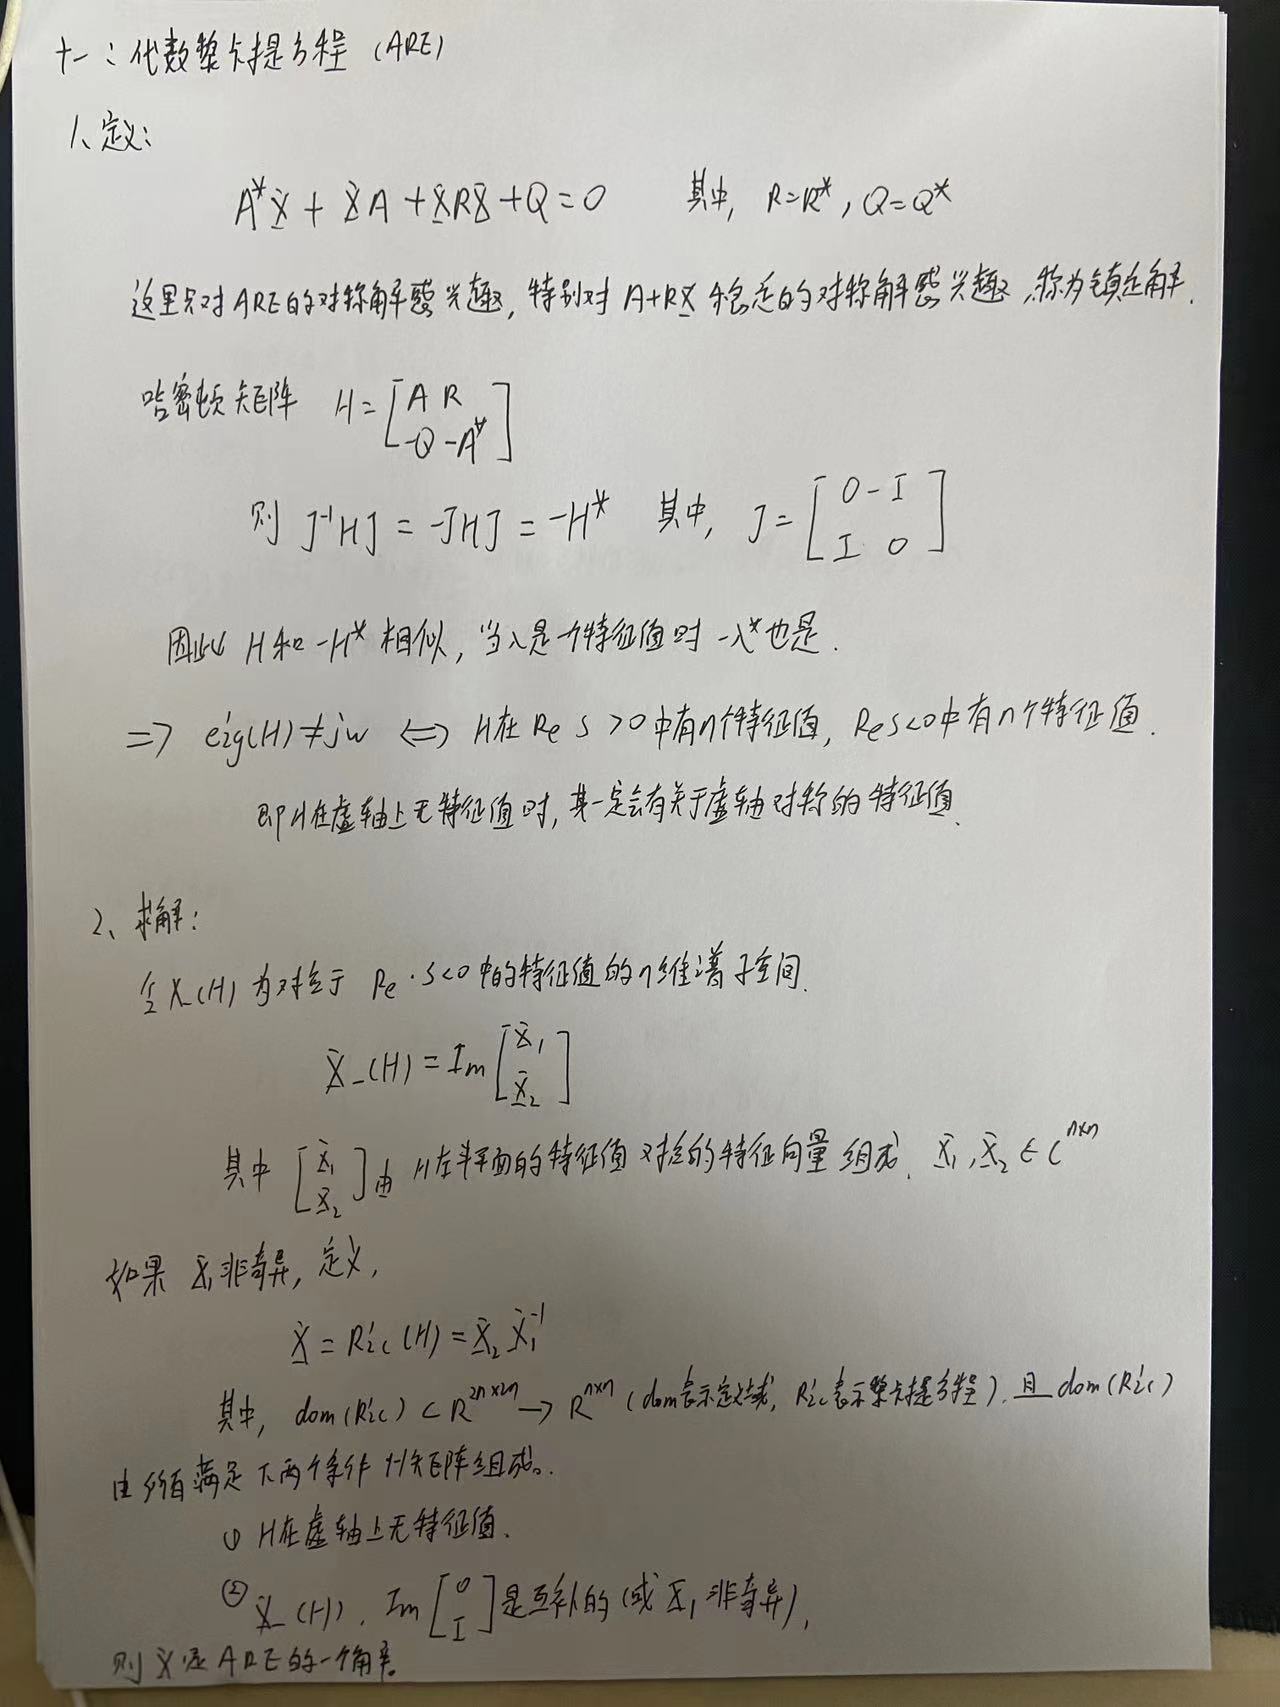 十一：代数黎卡提方程 (ARE)
1、定义：
A*X + XA + XRX + Q = 0 其中, R=R*, Q=Q*
这里只对ARE的对称解感兴趣, 特别对 A+RX 稳定的对称解感兴趣, 称为镇定解.
哈密顿矩阵 H = [A R; -Q -A*]
则 J⁻¹HJ = -JHJ = -H* 其中, J = [0 -I; I 0]
因此 H和-H* 相似, 当λ是一个特征值时 -λ*也是.
=> eig(H)≠jw <=> H在 Re S >0 中有n个特征值, Re S<0中有n个特征值.
即H在虚轴上无特征值时, 其一定会有关于虚轴对称的特征值.
2、求解：
令X_(H) 为对应于 Re·S<0 中的特征值的n维谱子空间.
X_(H) = Im [X₁; X₂]
其中 [X₁; X₂] 由 H左半平面的特征值对应的特征向量组成. X₁, X₂ ∈ C^{n×n}
如果 X₁非奇异, 定义,
X = Ric(H) = X₂X₁⁻¹
其中, dom(Ric) ⊂ R^{2n×2n} → R^{n×n} (dom表示定义域, Ric表示黎卡提方程). 且 dom(Ric)
由所有满足下两个条件 H矩阵组成.
① H在虚轴上无特征值.
② X_(H), Im [0; I] 是互补的 (或 X₁ 非奇异),
则 X是 ARE的一个解.